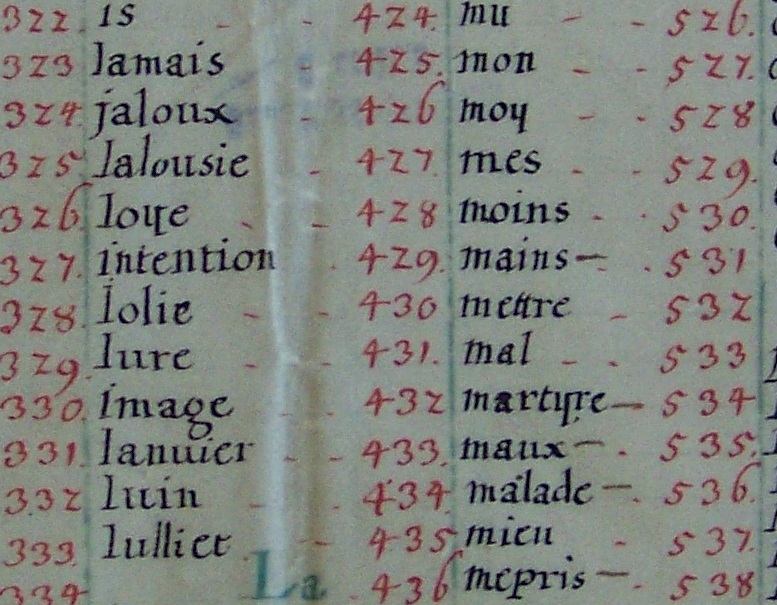 322. is - - 424. mu - - 526.
323 Jamais - 425. mon - - 527.
324. jaloux - 426 moy - - 528
325 Jalousie - 427. mes - - 529.
326. Ioye - - 428 moins - - 530.
327. intention - 429. mains - - 531
328. Iolie - - 430 mettre - 532
329. Iure - - 431. mal - - 533
330. image - - 432 martyre - 534
331. Ianuier - - 433. maux - - 535.
332 Iuin - - 434 malade - - 536
333. Iulliet - 435 mieu - 537.
334 La - 436 mepris - - 538